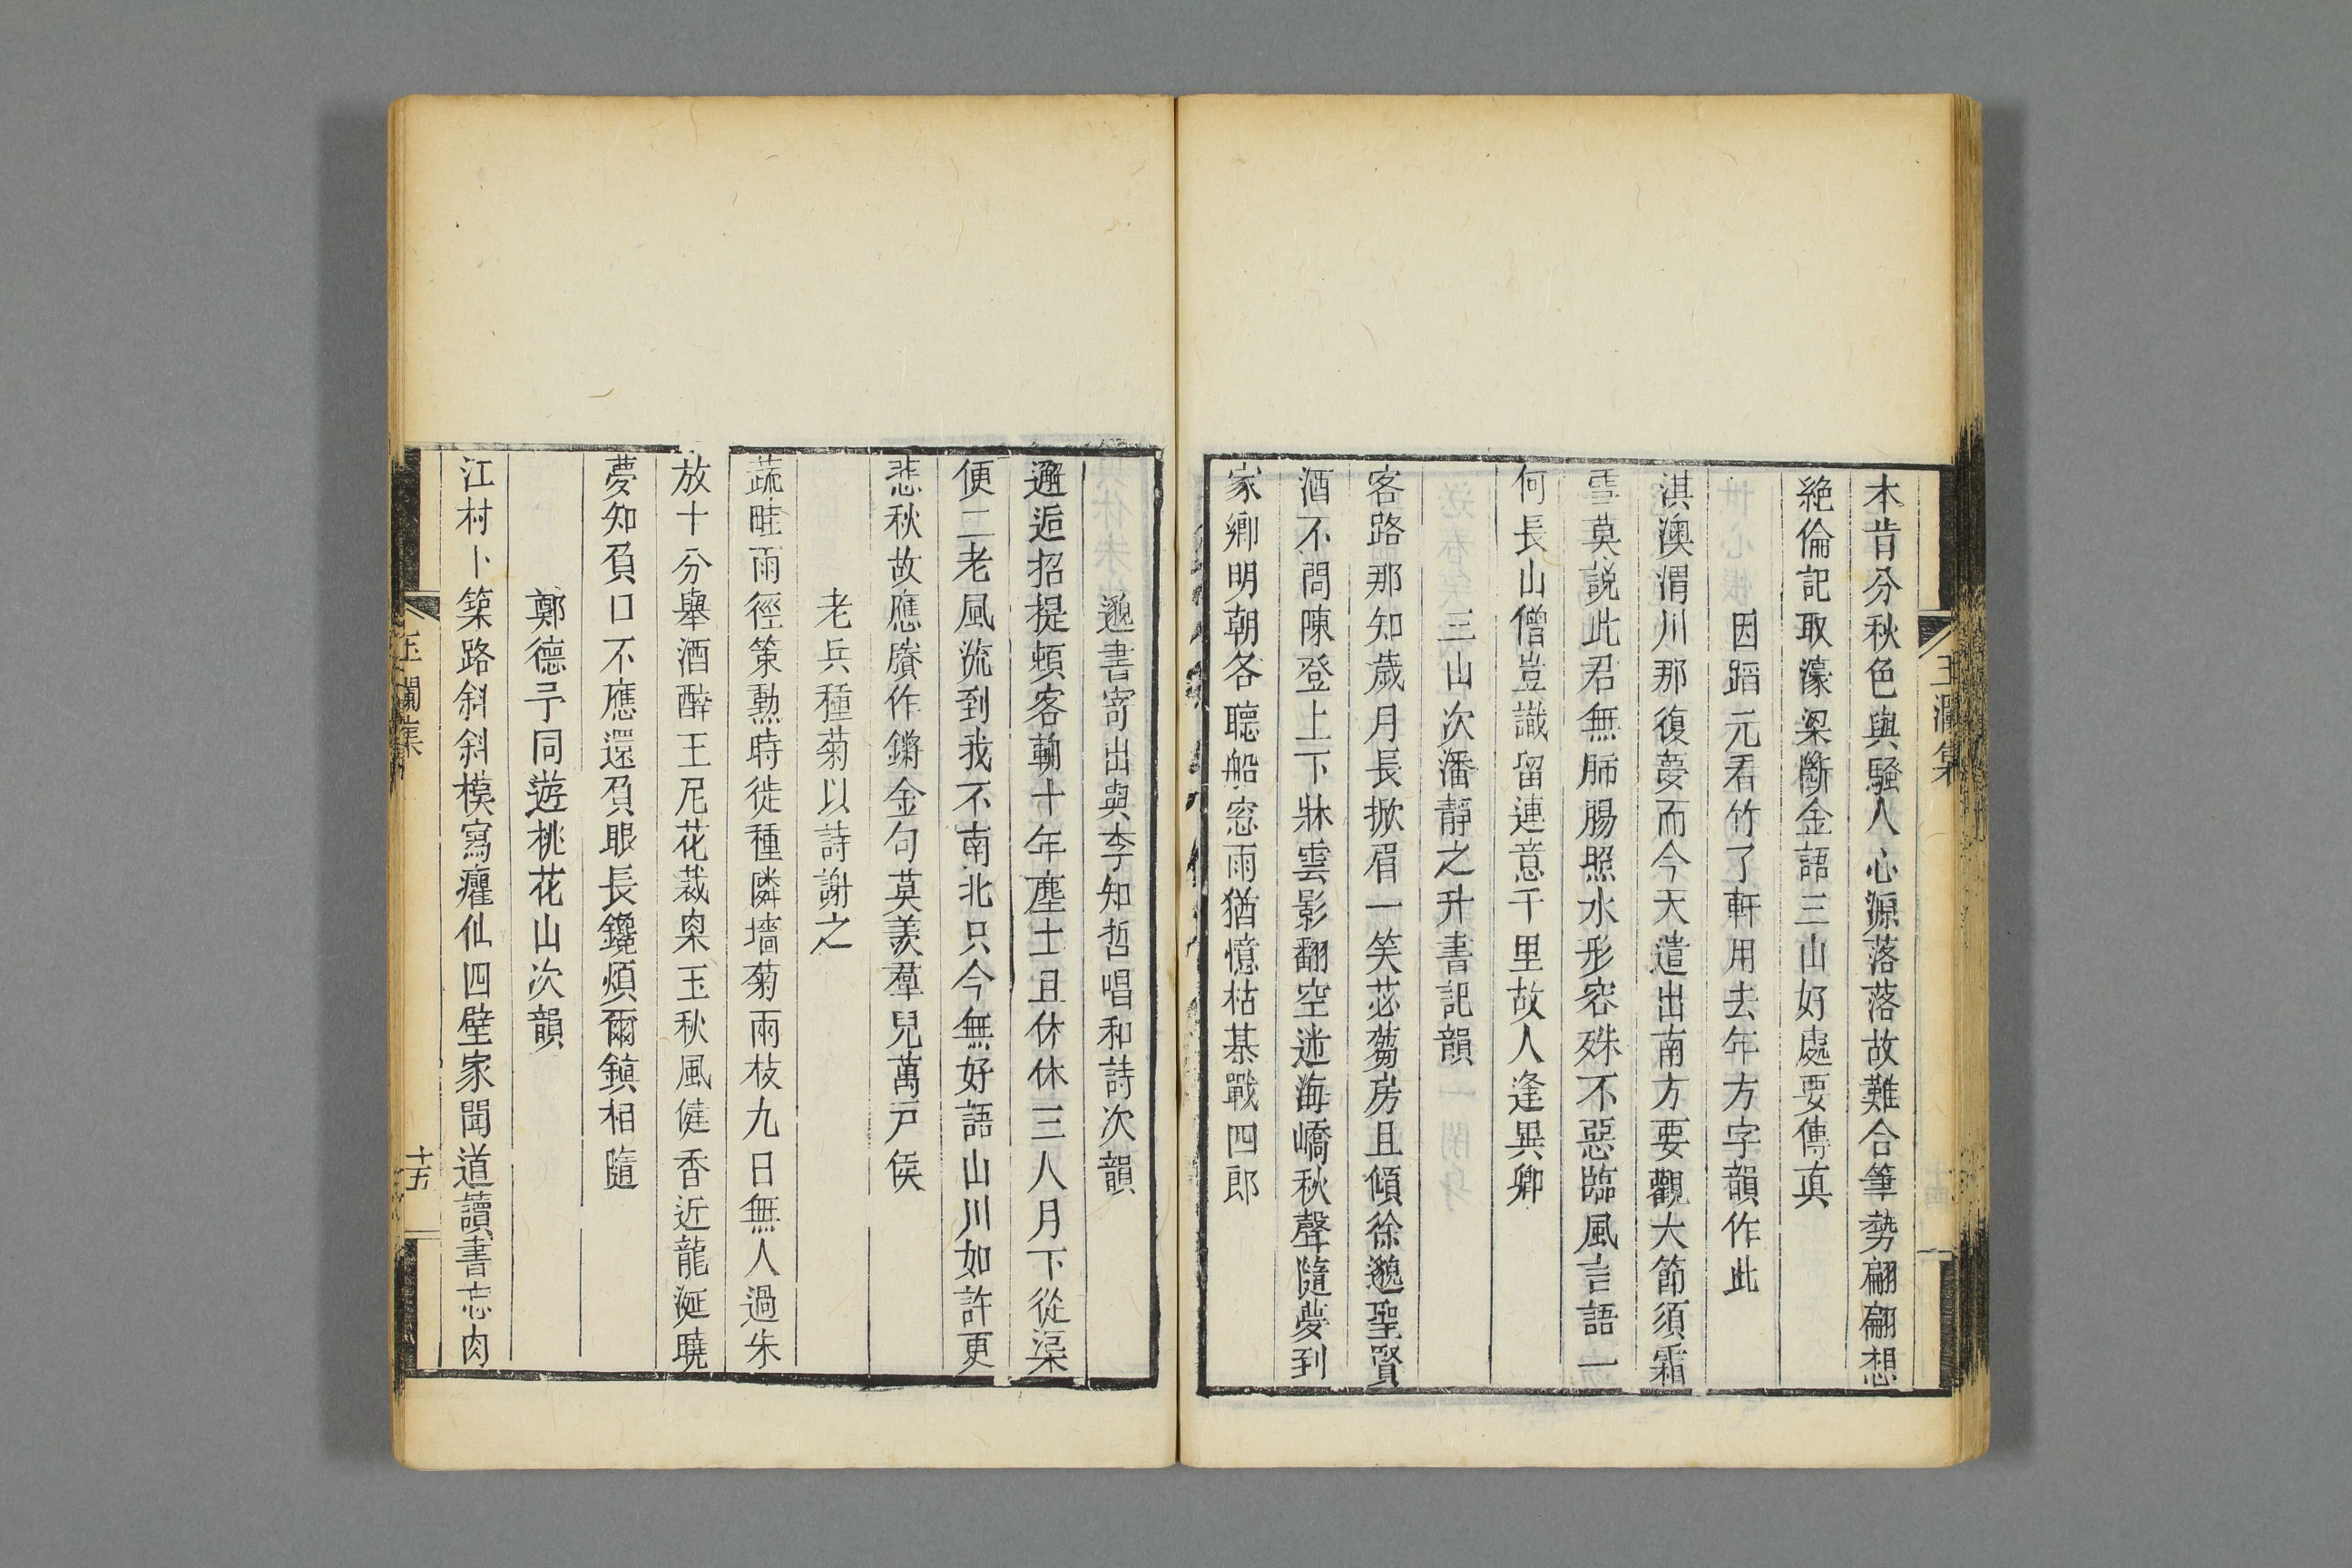 本肯分秋色與騷人心源落落故難合筆勢翩翩想
絶倫記取濠梁斷金語三山好處要傳真
因蹈元君竹了軒用去年方字韻作此
淇澳渭川那復夢而今天遣出南方要觀大節須霜
雪莫説此君無肺腸照水形容殊不惡臨風言語一
何長山僧豈識留連意千里故人逢異卿
三山次潘靜之升書記韻
客路那知歲月長掀眉一笑苾蒭房且傾徐邈聖賢
酒不問陳登上下牀雲影翻空迷海嶠秋聲隨夢到
家鄉明朝各聽船窓雨猶憶枯棊戰四郎
玉瀾集
邈書寄出與李知哲唱和詩次韻
邂逅招提頓客輈十年塵土且休休三人月下從渠
便二老風流到我不南北只今無好語山川如許更
悲秋故應賸作鏘金句莫羨羣兒萬戸侯
老兵種菊以詩謝之
蔬畦雨徑策勲時徙種隣墻菊兩枝九日無人過朱
放十分舉酒酔王尼花裁梟玉秋風健香近龍涎曉
夢知負口不應還負眼長鑱煩爾鎮相隨
鄭德予同遊桃花山次韻
江村卜築路斜斜模寫癯仙四壁家聞道讀書忘肉
玉瀾集
十五